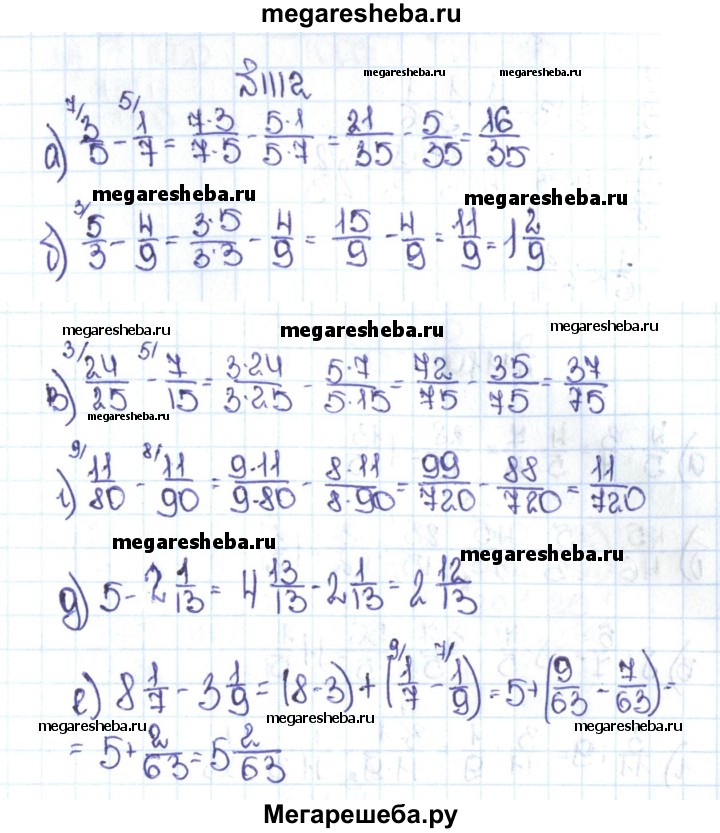 megaresheba.ru
№1112
megaresheba.ru megaresheba.ru
а) 7/ 3/5 - 5/ 1/7 = 7·3/7·5 - 5·1/5·7 = 21/35 - 5/35 = 16/35
megaresheba.ru megaresheba.ru
б) 3/ 5/3 - 4/9 = 3·5/3·3 - 4/9 = 15/9 - 4/9 = 11/9 = 1 2/9
megaresheba.ru megaresheba.ru megaresheba.ru
в) 3/ 24/25 - 5/ 7/15 = 3·24/3·25 - 5·7/5·15 = 72/75 - 35/75 = 37/75
megaresheba.ru
г) 9/ 11/80 - 8/ 11/90 = 9·11/9·80 - 8·11/8·90 = 99/720 - 88/720 = 11/720
megaresheba.ru megaresheba.ru
д) 5 - 2 1/13 = 4 13/13 - 2 1/13 = 2 12/13
е) 8 1/7 - 3 1/9 = (8-3) + (9/ 1/7 - 7/ 1/9) = 5 + (9/63 - 7/63) =
megaresheba.ru megaresheba.ru megaresheba.ru
= 5 + 2/63 = 5 2/63
Мегарешеба.ру